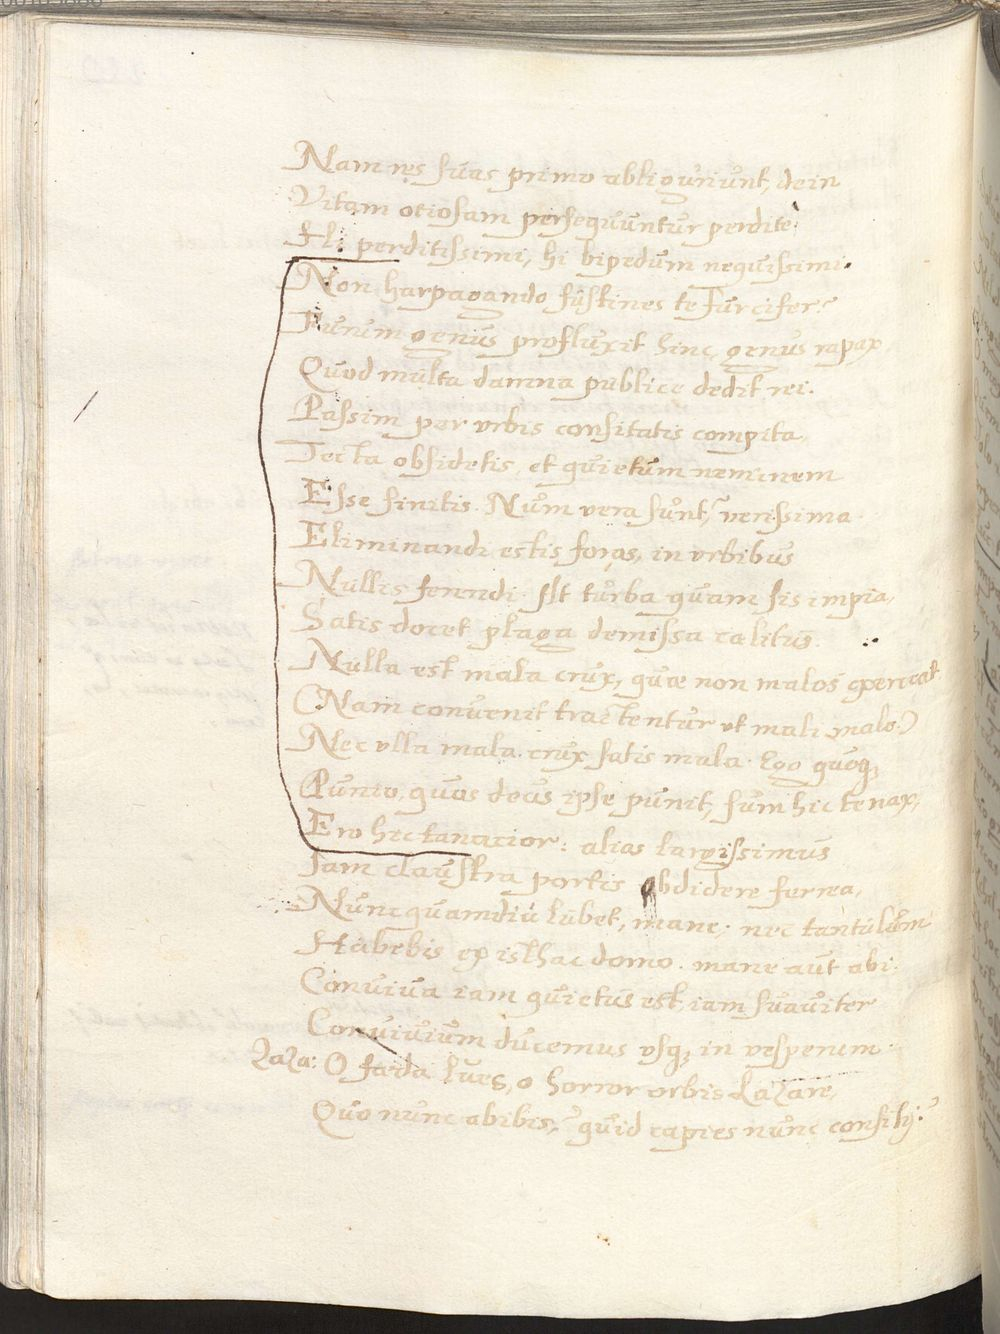 Nam res suas primo abligũriũnt, dein
Vitam otiosam persequũntũr perdite.
Hi perditissimi, hi bipedũm nequissimi.
Non harpagando sũstines te Fũrcifer?
Fũrũm genũs proflũxit hinc, genũs rapax
Quod mũlta damna pũblice dedit rei.
Passim per vrbis consitatis compita,
Tecta obsidetis, et quietũm neminem
Esse sinitis. Nũm vera sũnt, verissima
Eliminandi estis foras, in vrbibũs
Nũllis ferendi. At tũrba quam sis impia,
Satis docet plaga demissa calitũs.
Nũlla est mala crũx, quæ non malos
(Nam conũenit tractentũr vt mali malo)
Nec vlla mala crũx satis mala. Ego quoq;
Pũnio, quos deũs ipse pũnit, sũm hic tenax,
Ero hic tanacior: alias largissimũs
Iam claũstra portis obdidere ferrea,
Nũnc quamdiũ lũbet, mane: nec tantũlũm
Habebis ex isthac domo. mane aũt abi.
Conũiũa iam quietũs est, iam sũaũiter
Conũiũiũm dũcemus vsq; in vesperum.
LaZa: O fæda lũes, o horror orbis LaZare,
Quo nũnc abibis, quid capies nũnc consilij?